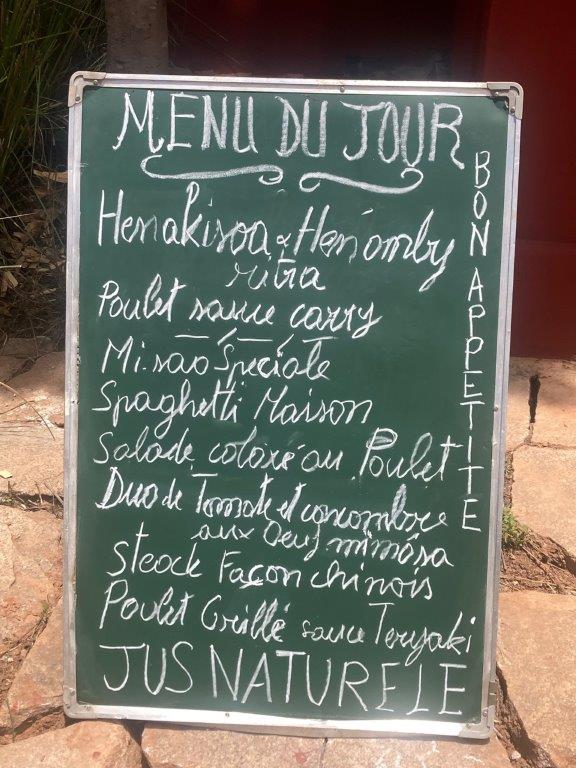 MENU DU JOUR
Henakisoa & Hen'omby
ritra
Poulet sauce carry
Mi-sao Spéciale
Spaghetti Maison
Salade coloré au Poulet
Duo de Tomate et concombre
aux Oeuf mimosa
Steack Façon chinois
Poulet Grillé sauce Teryaki
JUS NATURELE
BON APPETITE